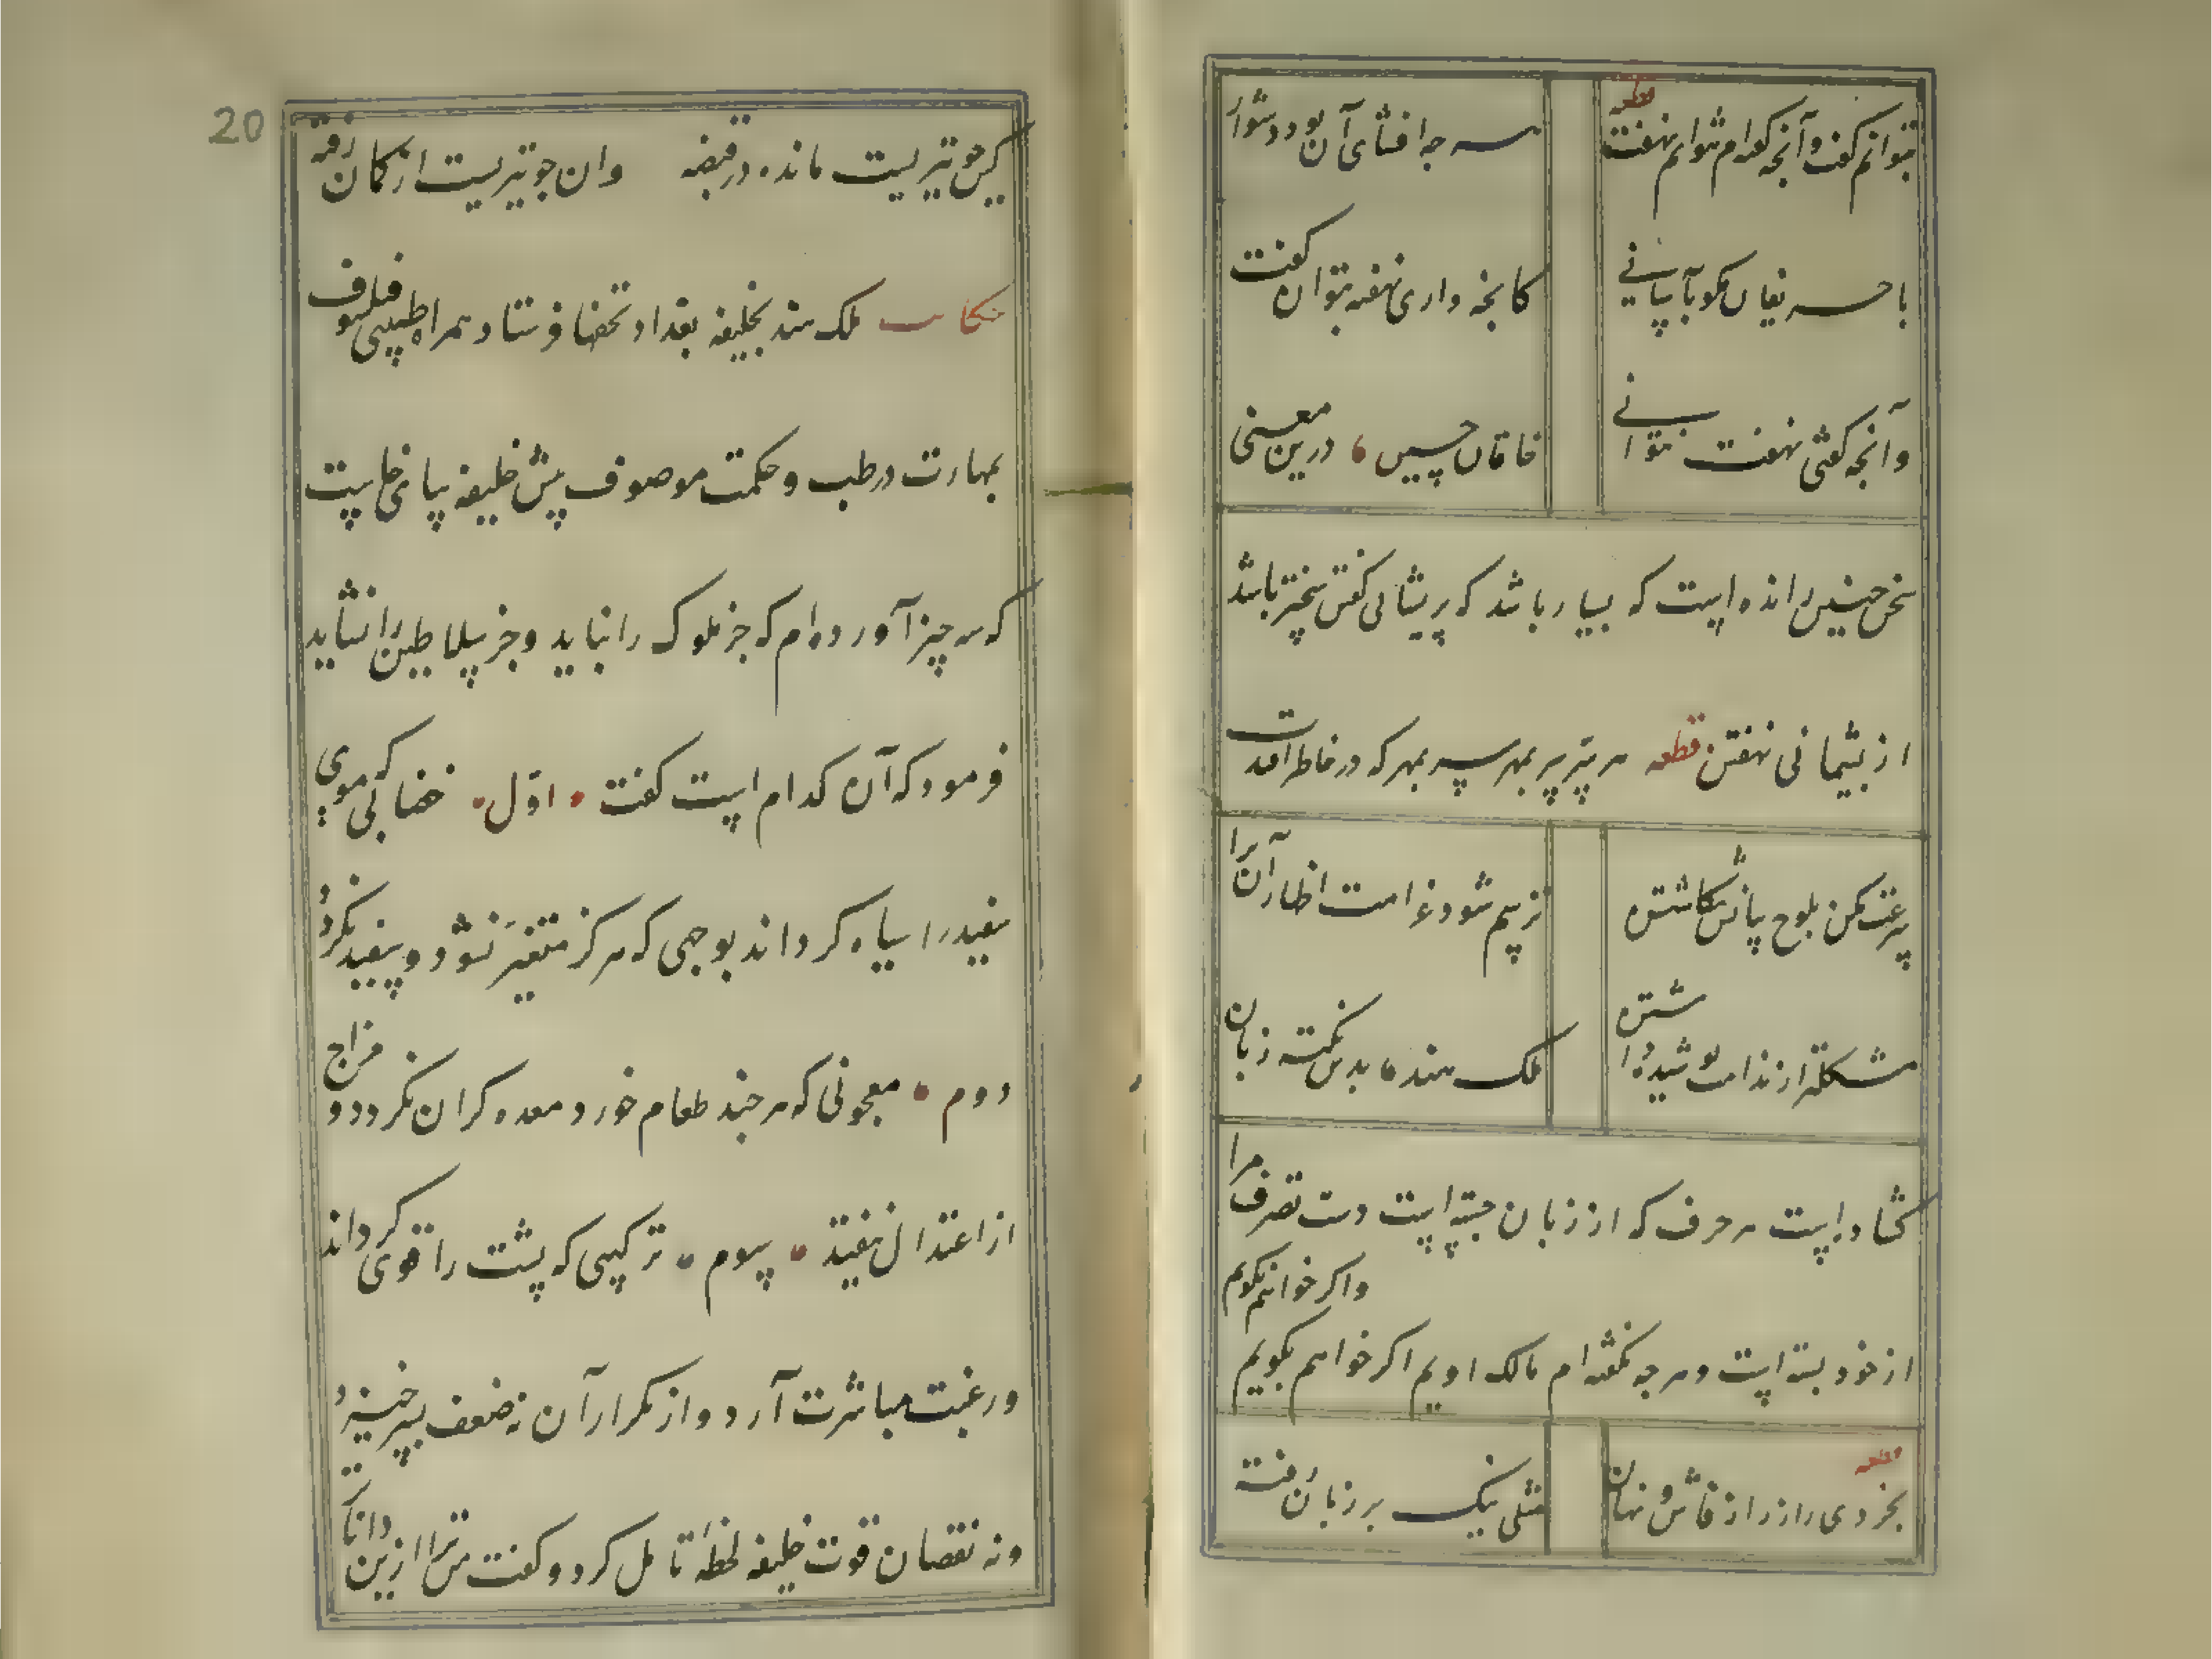 بتوانم گفت و آنچه گفته‌ام نتوانم نهفت قطعه
هر چه افشای آن بود دشوار
با حریفان مگو بآسانی
کانچه داری نهفته بتوان گفت
وآنچه گفتی نهفت نتوانی
خاقان چین درین معنی
سخن چنین رانده است که بسیار باشد که پریشانی گفتن سختر باشد
از پشیمانی نهفتن قطعه هر سر سر بمهر که در خاطر آمدت
سرعت مکن بلوح بیانش نگاشتن
ترسم شود غرامت اظهار آن ترا
مشکلتر از ندامت پوشیده داشتن
ملک هند بدین نکته زبان
گشاده است هر حرف که از زبان جسته است دست تصرف مرا
از خود بسته است و هر چه نگفته‌ام مالک اویم اگر خواهم بگویم
واگر خواهم نگویم
قطعه بخردی را ز راز فاش و نهان
مثلی نیک بر زبان رفته
20
کین چو تیریست مانده در قبضه وان چو تیریست از کمان رفته
حکایت ملک هند بخلیفه بغداد تحفها فرستاد همراه طبیبی فیلسوف
بمهارت در طب و حکمت موصوف پیش خلیفه بپای خاست
که سه چیز آورده‌ام که جز ملوک را نباید و جز سلاطین را نشاید
فرمود که آن کدام است گفت اوّل خضابی که موی
سفید را سیاه گرداند بوجهی که هرگز متغیّر نشود و سفید نگردد
دوم معجونی که هر چند طعام خورد معده گران نگردد و مزاج
از اعتدال نیفتد سیوم ترکیبی که پشت را قوی گرداند
ورغبت مباشرت آرد و از تکرار آن نه ضعف بصر خیزد
ونه نقصان قوت خلیفه لحظهٔ تأمل کرد و گفت من ترا ازین داناتر